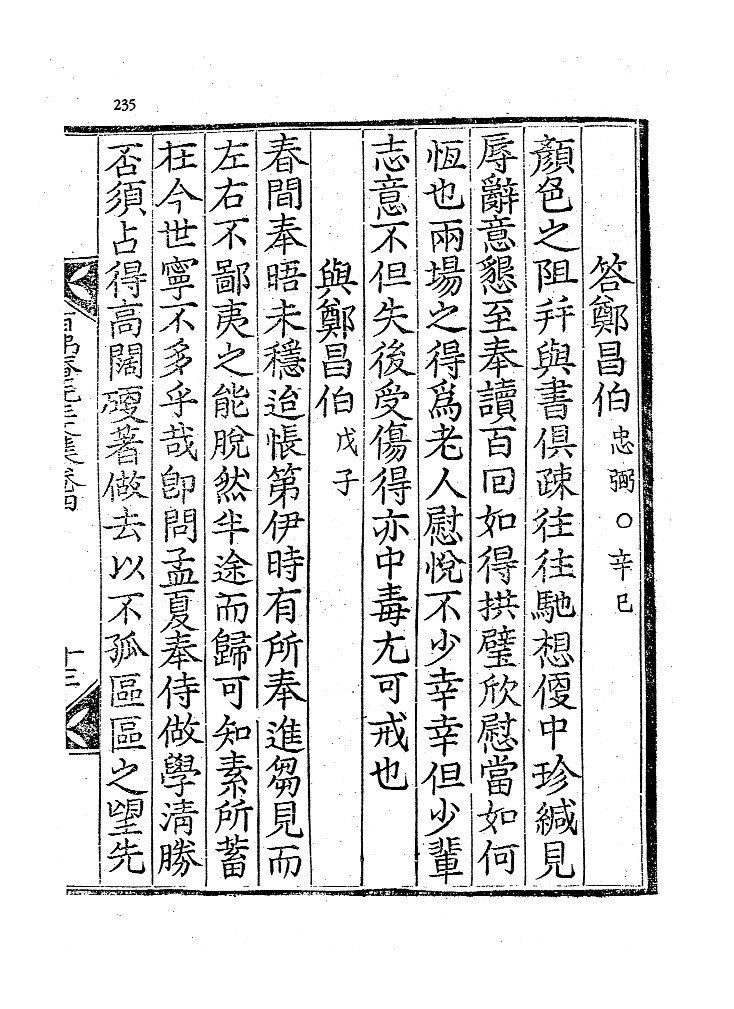 235
答鄭昌伯 忠弼○辛巳
顏色之阻幷與書俱疎往往馳想便中珍緘見
辱辭意懇至奉讀百回如得拱璧欣慰當如何
恆也兩場之得爲老人慰悅不少幸幸但少輩
志意不但失後受傷得亦中毒尤可戒也
與鄭昌伯 戊子
春間奉晤未穩迨悵第伊時有所奉進芻見而
左右不鄙夷之能脫然半途而歸可知素所蓄
在今世寧不多乎哉卽問孟夏奉侍做學淸勝
否須占得高闊著做去以不孤區區之望先
十三